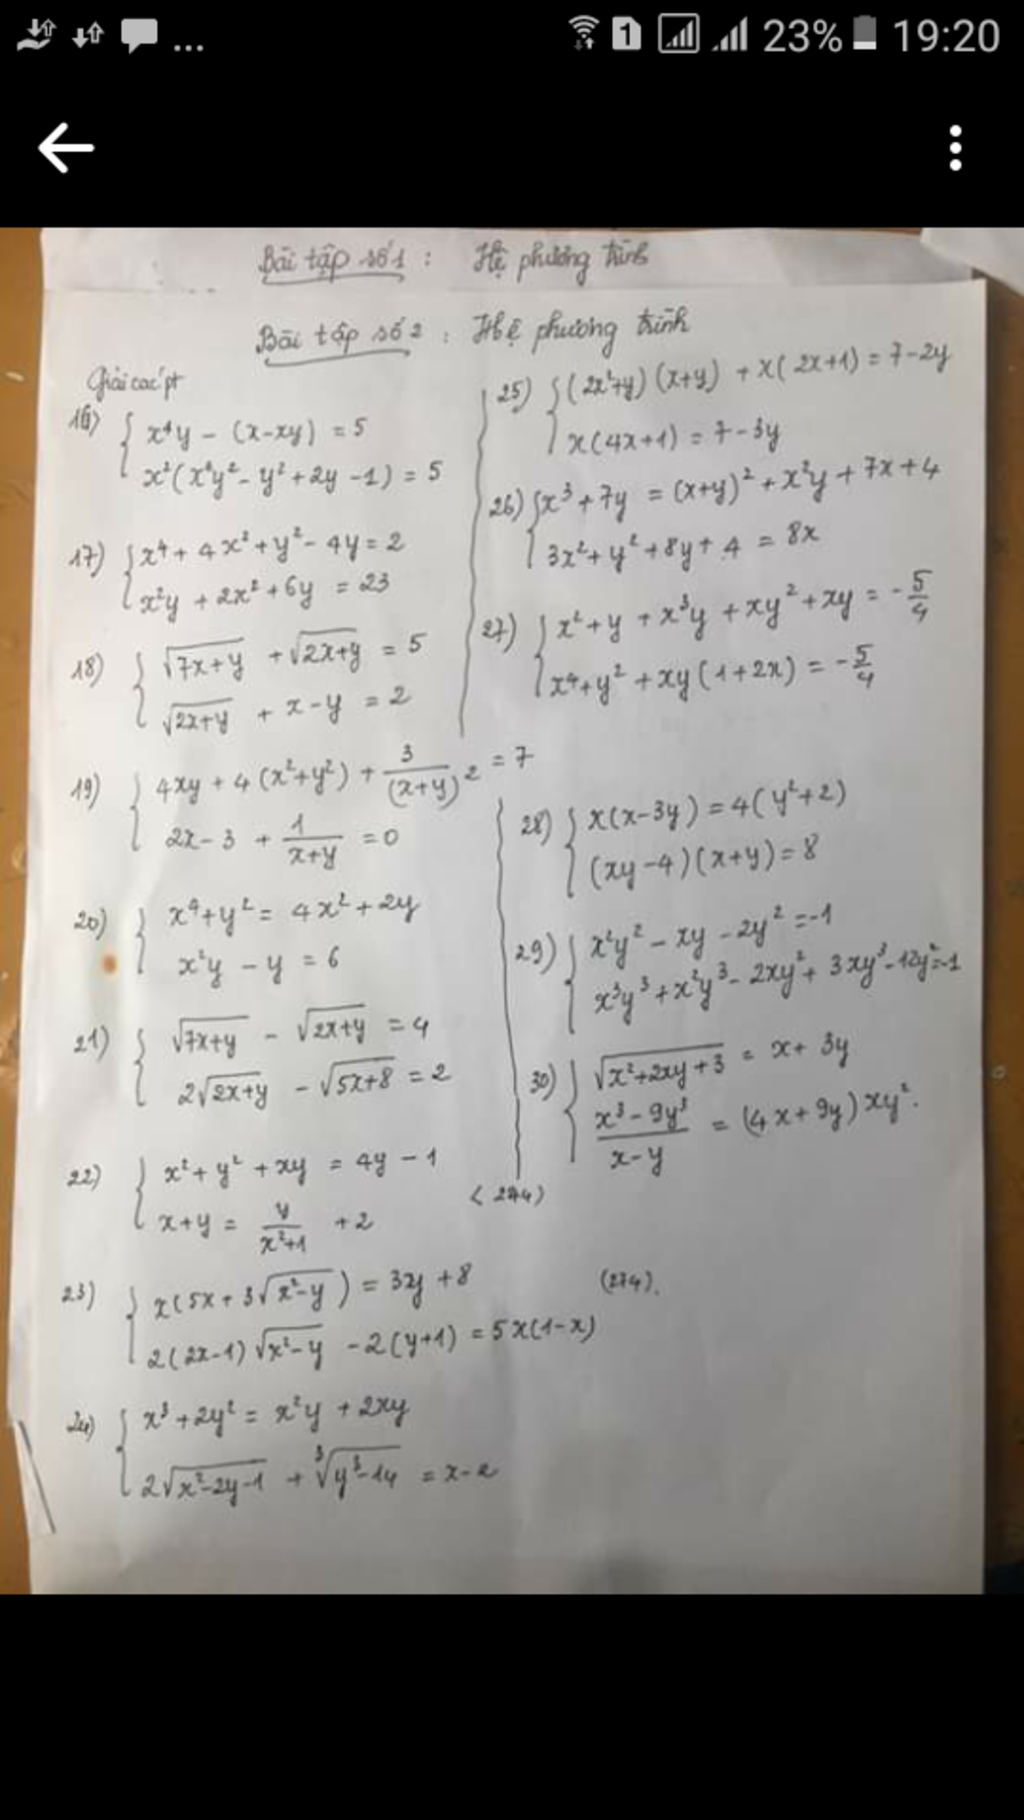 23% 19:20
Bài tập số 1 : Hệ phương trình
Bài tập số 2 : Hệ phương trình
Giải các pt
16) { x⁴y - (x-xy) = 5
x²(x⁴y² - y² + 2y - 1) = 5
17) { x⁴ + 4x² + y² - 4y = 2
x²y + 2x² + 6y = 23
18) { √(7x+y) + √(2x+y) = 5
√(2x+y) + x - y = 2
19) { 4xy + 4(x²+y²) + 3/(x+y)² = 7
2x - 3 + 1/(x+y) = 0
20) { x⁴ + y² = 4x² + 2y
x²y - y = 6
21) { √(7x+y) - √(2x+y) = 4
2√(2x+y) - √(5x+8) = 2
22) { x² + y² + xy = 4y - 1
x + y = y/(x²+1) + 2
23) { x(5x + 3√(x²-y)) = 3y + 8
2(2x-1)√(x²-y) - 2(y+1) = 5x(1-x)
24) { x³ + 2y² = x²y + 2xy
2√(x²-2y-1) + ∛(y³-14) = x-2
25) { (2x²+y)(x+y) + x(2x+1) = 7-2y
x(4x+1) = 7-3y
26) { x³ + 7y = (x+y)² + x²y + 7x + 4
3x² + y² + 8y + 4 = 8x
27) { x² + y + x³y + xy² + xy = -5/4
x⁴ + y² + xy(1+2x) = -5/4
28) { x(x-3y) = 4(y²+2)
(xy-4)(x+y) = 8
29) { x²y² - xy - 2y² = -1
x³y³ + x²y³ - 2xy² + 3xy³ - 12y² = -1
30) { √(x²+2xy+3) = x + 3y
(x³-9y³)/(x-y) = (4x+9y)xy².
(274)
(274).